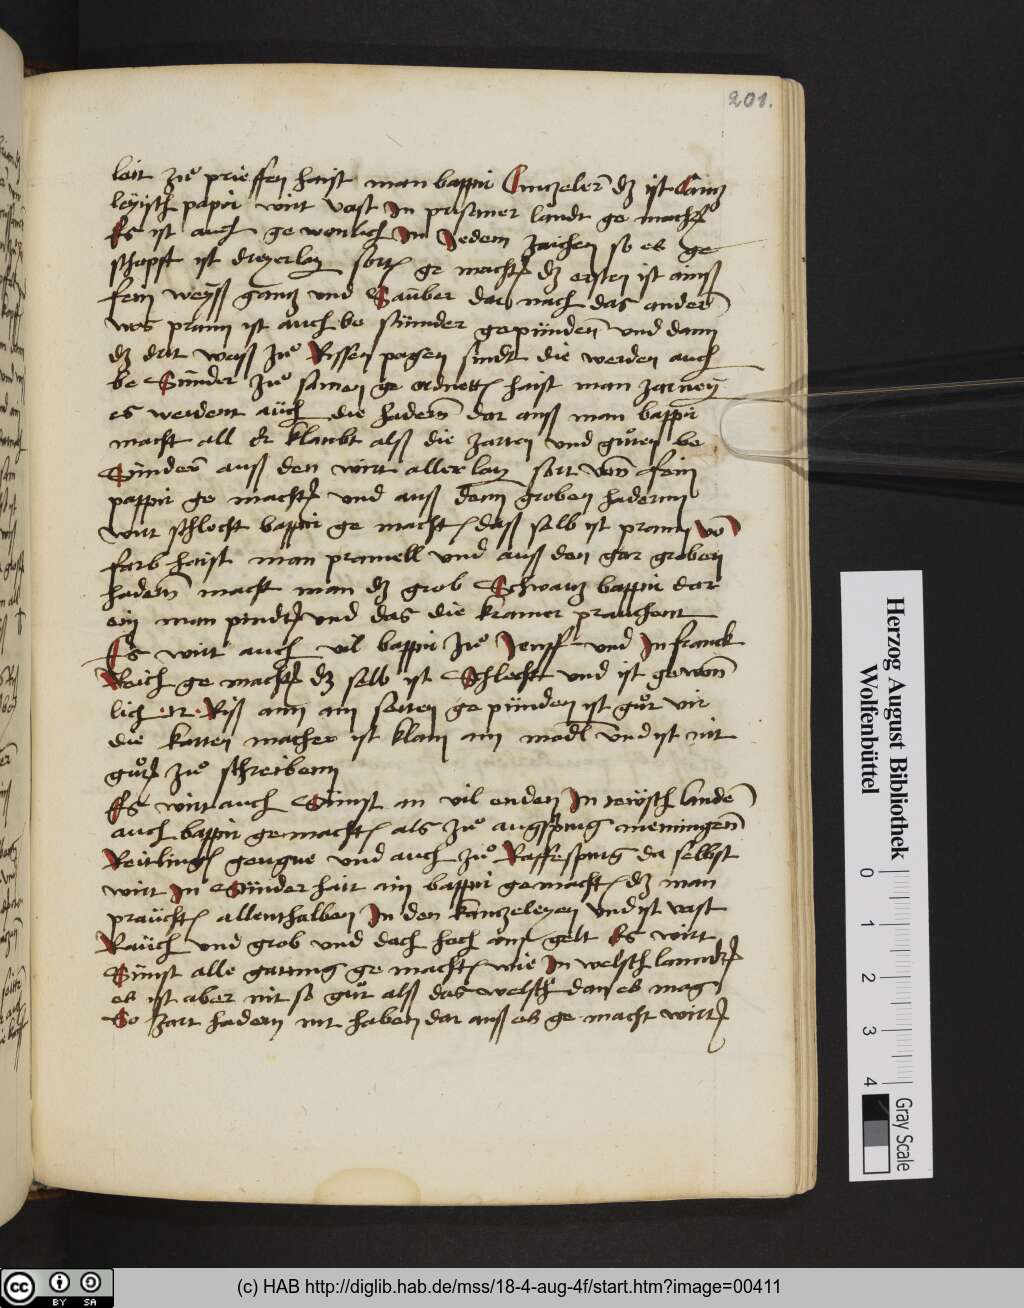 201.
leit zuͦ prieffen haist man bappir Cantzelerˉ dz ist Cantz
leyisch papir wirt vast In prisamer landt ge macht
Es ist auch ge wonlich In Jedem zaichen so es ge
schopft ist dreyerlay sortˉ ge macht dz ersten ist ainß
fein weyß gantz und Sauber dar nach das anderˉ
was prann ist auch be sünnder gepündenˉ und dann
dz drit waß zuͦ Rissen pogen sindt die werden auch
be Sünder zuͦ samen ge ordnett haist man zarney
es werdent auch die hadernˉ dar auß man bappir
macht all er klaubt alß die zarten und guͦten be
Sünderˉ auß den wirt aller lay sort vonˉ fein
pappir ge macht und auß denn groben hadernn
wirt schlecht bappir ge macht daß selb ist prann vo
farb haist man pramell und auß den gar groben
hadernˉ macht man dz grob Schwartz bappir dar
ein man pindt und das die kramer prauchent
Es wirt auch vil bappir zuͦ Jenff und In franck
Reich ge macht dz selb ist Schlecht und ist gewonˉ
lich Riß ann ain seitten ge pünden ist guͦt vir
die karten macher ist klain ain modl und ist nit
guͦt zuͦ schreibenn
Es wirt auch Sünst an vil enden In tewsch landeˉ
auch bappir gemacht als zuͦ augspurg memingenˉ
Reitling gengne und auch zuͦ Raffespurg da selbst
wirt In Sünderhait ain bappir gemacht dz man
praücht allenthalben In den kantzeleyen und ist vast
Rauch und grob und doch hoch am gelt Es wirt
Sünst alle gattung ge macht wie In welsch lanndt
es ist aber nit so guͦt alß das welsch dan es mag
So zart hadern nit haben dar auß es ge macht wirt
Herzog August Bibliothek
Wolfenbüttel
0 1 2 3 4
Gray Scale
cc BY SA
(c) HAB http://diglib.hab.de/mss/18-4-aug-4f/start.htm?image=00411